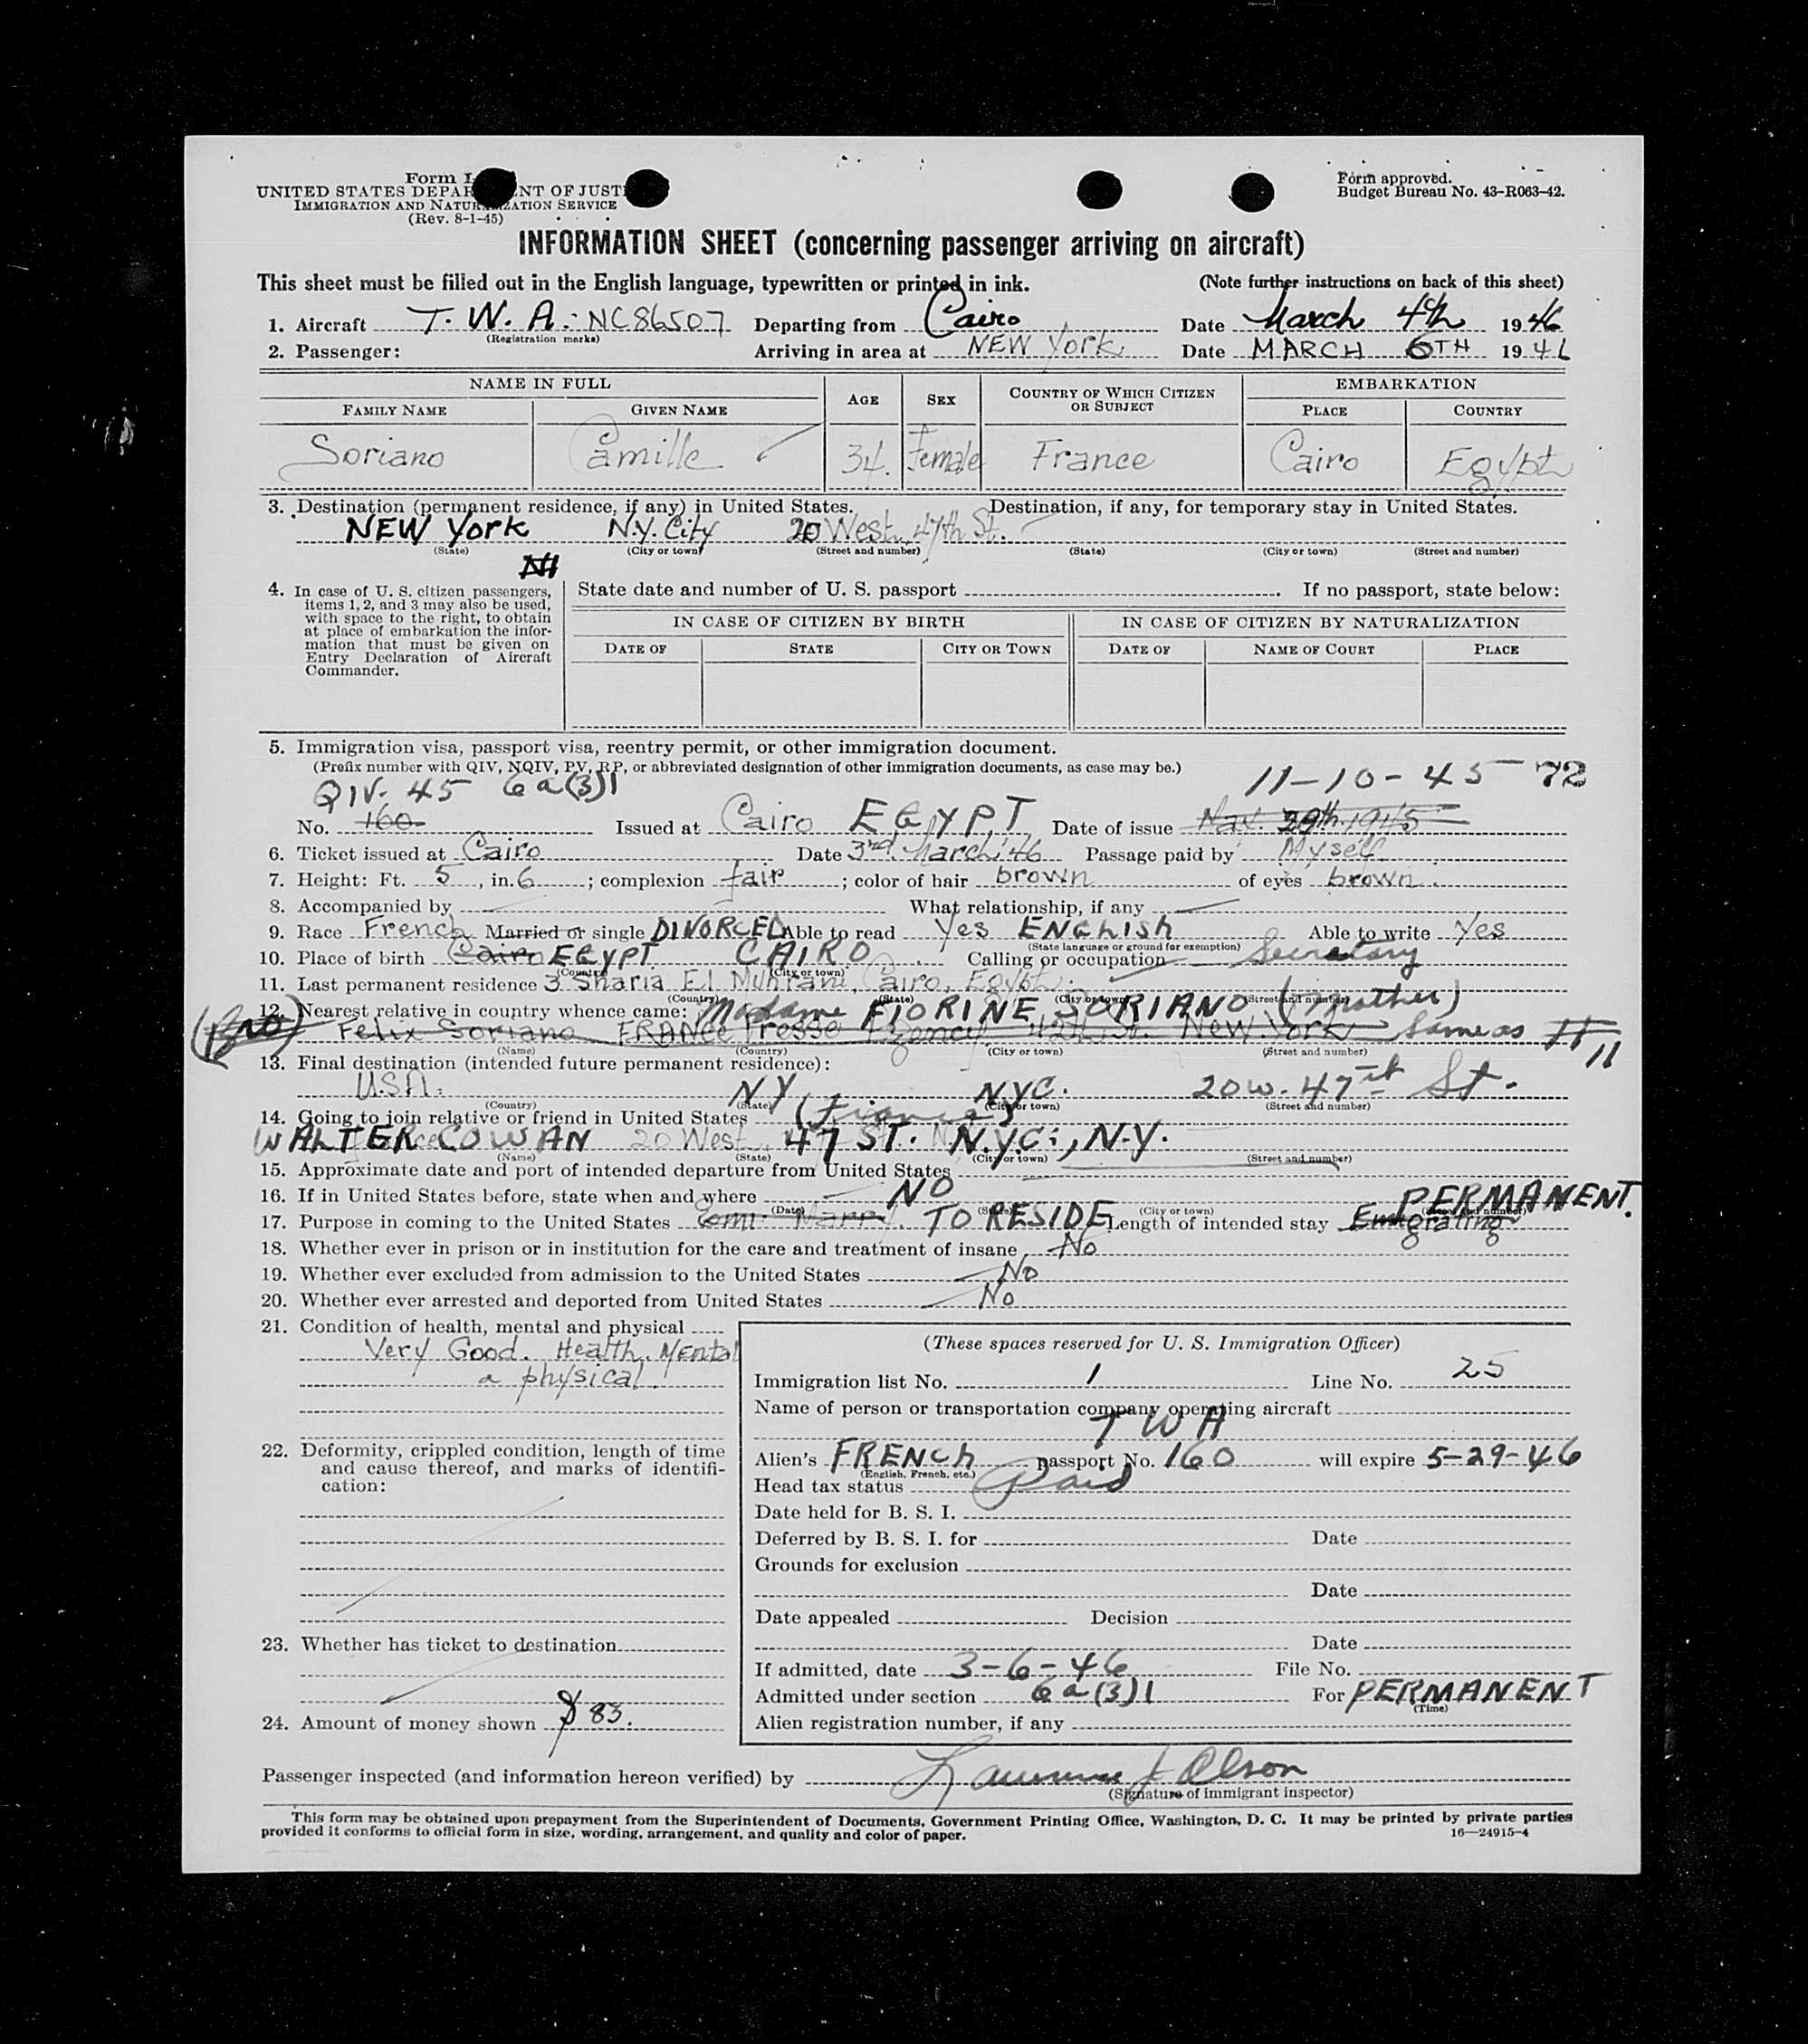 Form I
UNITED STATES DEPAR NT OF JUST
IMMIGRATION AND NATURALIZATION SERVICE
(Rev. 8-1-45)
Form approved.
Budget Bureau No. 43-R063-42.
INFORMATION SHEET (concerning passenger arriving on aircraft)
This sheet must be filled out in the English language, typewritten or printed in ink. (Note further instructions on back of this sheet)
1. Aircraft T. W. A. NC86507 Departing from Cairo Date March 4th 1946
(Registration marks)
2. Passenger: Arriving in area at NEW York Date MARCH 6TH 1946
NAME IN FULL AGE SEX COUNTRY OF WHICH CITIZEN OR SUBJECT EMBARKATION
FAMILY NAME GIVEN NAME PLACE COUNTRY
Soriano Camille 34. Female France Cairo Egypt
3. Destination (permanent residence, if any) in United States. Destination, if any, for temporary stay in United States.
NEW York N.Y. City 20 West 47th St.
(State) (City or town) (Street and number) (State) (City or town) (Street and number)
4. In case of U. S. citizen passengers, items 1, 2, and 3 may also be used, with space to the right, to obtain at place of embarkation the information that must be given on Entry Declaration of Aircraft Commander.
State date and number of U. S. passport If no passport, state below:
IN CASE OF CITIZEN BY BIRTH IN CASE OF CITIZEN BY NATURALIZATION
DATE OF STATE CITY OR TOWN DATE OF NAME OF COURT PLACE
5. Immigration visa, passport visa, reentry permit, or other immigration document.
(Prefix number with QIV, NQIV, PV, RP, or abbreviated designation of other immigration documents, as case may be.)
QIV. 45 6a(3)1 11-10-45 72
No. 160 Issued at Cairo EGYPT Date of issue 29th 1945
6. Ticket issued at Cairo Date 3rd March '46 Passage paid by Myself
7. Height: Ft. 5, in. 6; complexion fair; color of hair brown of eyes brown.
8. Accompanied by What relationship, if any
9. Race French Married or single DIVORCED Able to read Yes ENGLISH Able to write Yes
(State language or ground for exemption)
10. Place of birth Cairo EGYPT CAIRO Calling or occupation Secretary
(Country) (City or town)
11. Last permanent residence 3 Sharia El Muhrani, Cairo, Egypt.
(Country) (State) (City or town) (Street and number)
12. Nearest relative in country whence came: Madame FIORINE SORIANO (mother)
(Bro) Felix Soriano FRANCE Presse Agency 42th St. New York Same as # 11
(Name) (Country) (City or town) (Street and number)
13. Final destination (intended future permanent residence):
U.S.A. NY NYC. 20 W. 47th St.
(Country) (State) (City or town) (Street and number)
14. Going to join relative or friend in United States (Fiance)
WALTER COWAN 20 West 47 ST. N.Y.C., N.Y.
(Name) (State) (City or town) (Street and number)
15. Approximate date and port of intended departure from United States
16. If in United States before, state when and where NO
(Date) (State) (City or town) (Street and number)
PERMANENT.
17. Purpose in coming to the United States Marry. TO RESIDE Length of intended stay Emigrating
18. Whether ever in prison or in institution for the care and treatment of insane No
19. Whether ever excluded from admission to the United States No
20. Whether ever arrested and deported from United States No
21. Condition of health, mental and physical
Very Good. Health. Mental
a physical.
22. Deformity, crippled condition, length of time and cause thereof, and marks of identification:
23. Whether has ticket to destination
24. Amount of money shown $ 83.
(These spaces reserved for U. S. Immigration Officer)
Immigration list No. 1 Line No. 25
Name of person or transportation company operating aircraft
TWA
Alien's FRENCH passport No. 160 will expire 5-29-46
(English, French, etc.)
Head tax status Paid
Date held for B. S. I.
Deferred by B. S. I. for Date
Grounds for exclusion
Date
Date appealed Decision
Date
If admitted, date 3-6-46 File No.
Admitted under section 6a(3)1 For PERMANENT
(Time)
Alien registration number, if any
Passenger inspected (and information hereon verified) by Lawrence J Olson
(Signature of immigrant inspector)
This form may be obtained upon prepayment from the Superintendent of Documents, Government Printing Office, Washington, D. C. It may be printed by private parties
provided it conforms to official form in size, wording, arrangement, and quality and color of paper. 16—24915-4